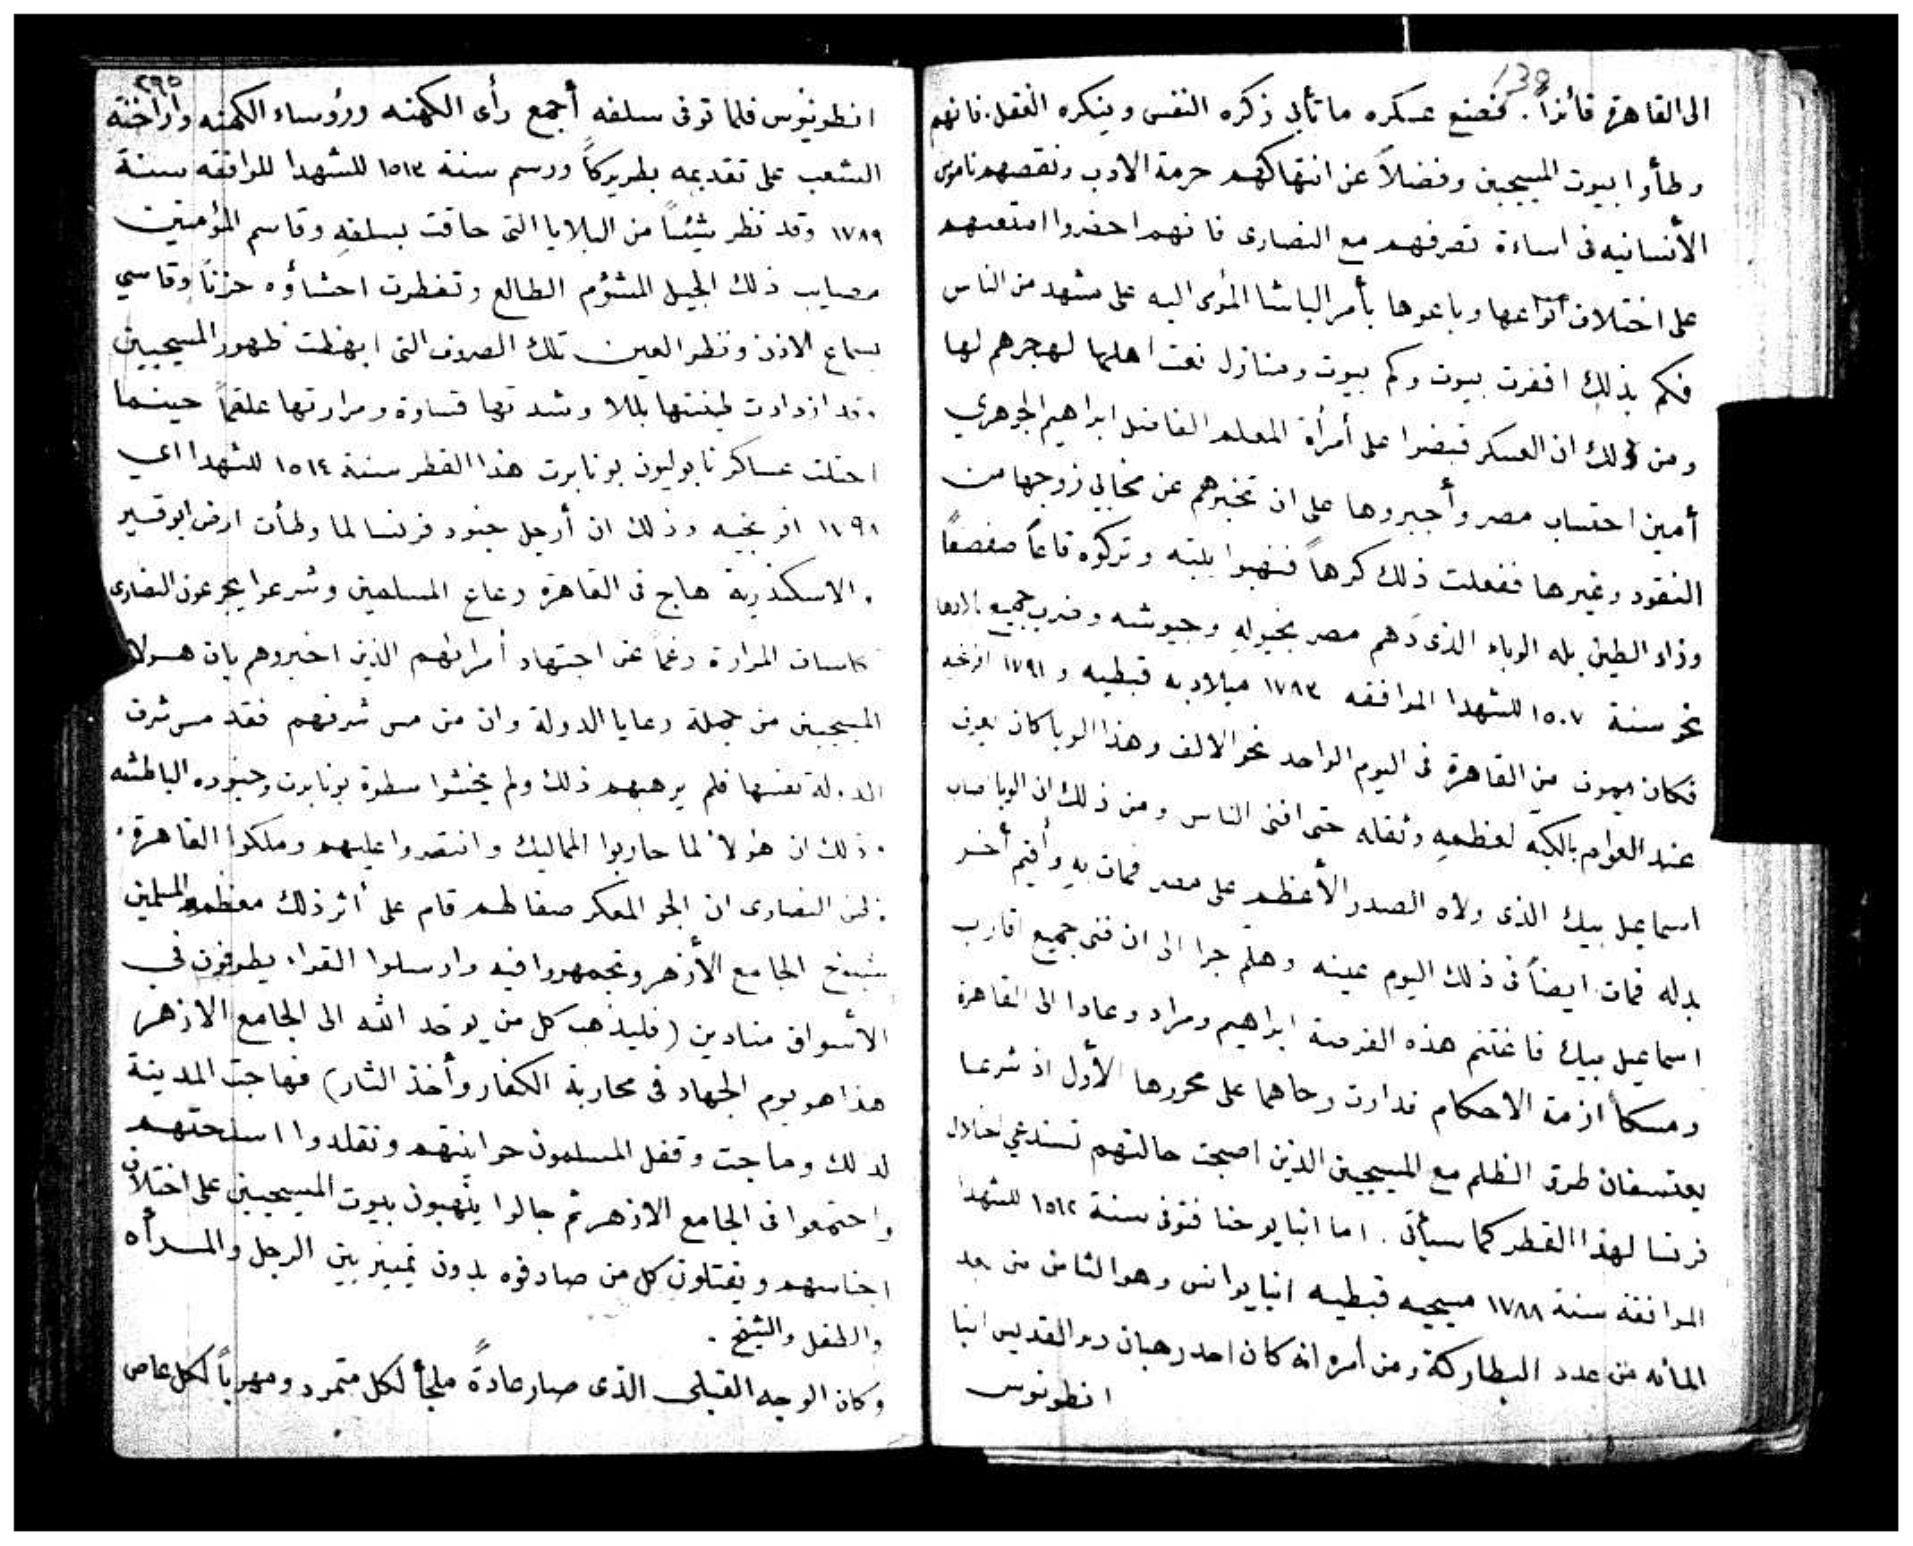 139
الى القاهرة فائزاً. فصنع عسكره ما تأبى ذكره النفس وينكره العقل. فانهم
وطأوا بيوت المسيحيين وفضلاً عن انتهاكهم حرمة الادب ونقضهم ناموس
الأنسانيه فى اساءة تصرفهم مع النصارى فانهم احضروا امتعتهم
على اختلاف أنواعها وباعوها بأمر الباشا المومى اليه على مشهد من الناس
فكم بذلك اقفرت بيوت وكم بيوت ومنازل نعت اهليها لهجرهم لها
ومن ذلك ان العسكر قبضوا على أمرأة المعلم الفاضل ابراهيم الجوهري
أمين احتساب مصر وأجبروها على ان تخبرهم عن مخابي زوجها من
النقود وغيرها ففعلت ذلك كرهاً فنهبوا بيته وتركوه قاعاً صفصفاً
وزاد الطين بله الوباء الذى دَهم مصر بخيوله وجيوشه وضرب جميع
نحو سنة ١٥٠٧ للشهدا الموافقه ١٧٨٣ ميلاديه قبطيه و ١٧٩١ افرنجيه
فكان يموت من القاهرة فى اليوم الواحد نحو الالف وهذا الوبا كان يعرف
عند العوام بالكبه لعظمه وثقله حتى افنى الناس ومن ذلك ان الوبا صاب
اسماعيل بيك الذى ولاه الصدر الأعظم على مصر فمات به وأقيم أخر
بدله فمات ايضاً فى ذلك اليوم عينه وهلم جرا الى ان فنى جميع اقارب
اسماعيل بيك فاغتنم هذه الفرصة ابراهيم ومراد وعادا الى القاهرة
ومسكا ازمة الاحكام فدارت رحاهما على محورها الأول اذ شرعا
يعتسفان طرق الظلم مع المسيحيين الذين اصبحت حالتهم تستدعي احتلال
فرنسا لهذا القطر كما سيأتى. اما انبا يوحنا فتوفى سنة ١٥١٢ للشهدا
الموافقة سنة ١٧٨٨ مسيحيه قبطيه انبا يوانس وهو الثامن من بعد
المائه من عدد البطاركة ومن أمره انه كان احد رهبان دير القديس انبا
انطونيوس
٢٩٥
انطونيوس فلما توفى سلفه أجمع رأى الكهنه ورؤساء الكهنه واراخنة
الشعب على تقديمه بطريركاً ورسم سنة ١٥١٣ للشهدا الموافقه سنة
١٧٨٩ وقد نظر شيئاً من البلايا التى حاقت بسلفه وقاسم المؤمنين
مصايب ذلك الجيل المشؤم الطالع وتفطرت احشاؤه حزناً وقاسي
بسماع الاذن ونظر العين تلك الصروف التى ابهظت ظهور المسيحيين
وقد ازدادت طينتها بللا وشدتها قساوة ومرارتها علقماً حينما
احتلت عساكر نابوليون بونابرت هذا القطر سنة ١٥١٤ للشهدا اي
١٧٩٨ افرنجيه وذلك ان أرجل جنود فرنسا لما وطأت ارض ابو قير
والاسكندرية هاج فى القاهرة رعاع المسلمين وشرعوا يجرعون النصارى
كاسات المرارة رغماً عن اجتهاد أمرائهم الذين اخبروهم بان هولاء
المسيحيين من جملة رعايا الدولة وان من مس شرفهم فقد مس شرف
الدولة نفسها فلم يرهبهم ذلك ولم يخشوا سطوة بونابرت وجنوده الباطشه
وذلك ان هؤلاء لما حاربوا المماليك وانتصروا عليهم وملكوا القاهرة
وظن النصارى ان الجو المعكر صفا لهم قام على أثر ذلك معظم المسلمين
بشيوخ الجامع الأزهر وتجمهروا فيه وارسلوا القراء يطوفون فى
الأسواق منادين (فليذهب كل من يوحد الله الى الجامع الازهر
هذا هو يوم الجهاد فى محاربة الكفار وأخذ الثار) فهاجت المدينة
لذلك وماجت وقفل المسلمون حوانيتهم وتقلدوا اسلحتهم
واجتمعوا فى الجامع الازهر ثم جالوا ينهبون بيوت المسيحيين على اختلاف
اجناسهم ويقتلون كل من صادفوه بدون تمييز بين الرجل والمرأه
والطفل والشيخ.
وكان الوجه القبلى الذى صار عادةً ملجأ لكل متمرد ومهرباً لكل عاص